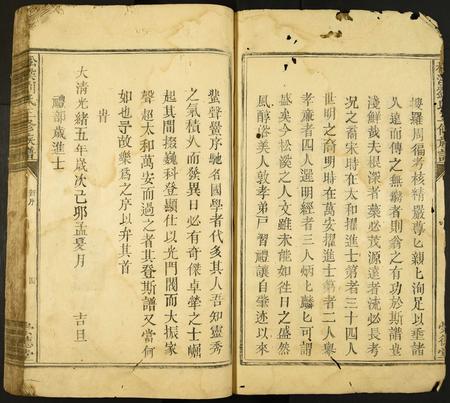 搜羅周徧考核精嚴尊匕親匕洵足以垂諸
久遠而傳之無斁者則翁之有功於斯譜豈
淺鮮哉夫根深者葉必茂源遠者流必長考
况之裔宋時在太和擢進士第者三十四人
世明之裔明時在萬安擢進士第者二人舉
孝廉者四人選明經者三人炳匕麟匕可謂
盛矣今松溪之人文雖未能如徃日之盛然
風醇俗美人敦孝弟戸習禮讓自肇迹以來
蜚聲黌序馳名國學者代多其人吾知靈秀
之氣積久而發異日必有奇傑卓犖之士崛
起其間掇巍科登顯仕以光門閭而大振家
聲超太和萬安而過之者其登斯譜又當何
如也予故樂爲之序以弁其首
旹
大清光緒五年歲次己卯孟夏月　吉旦
禮部歲進士